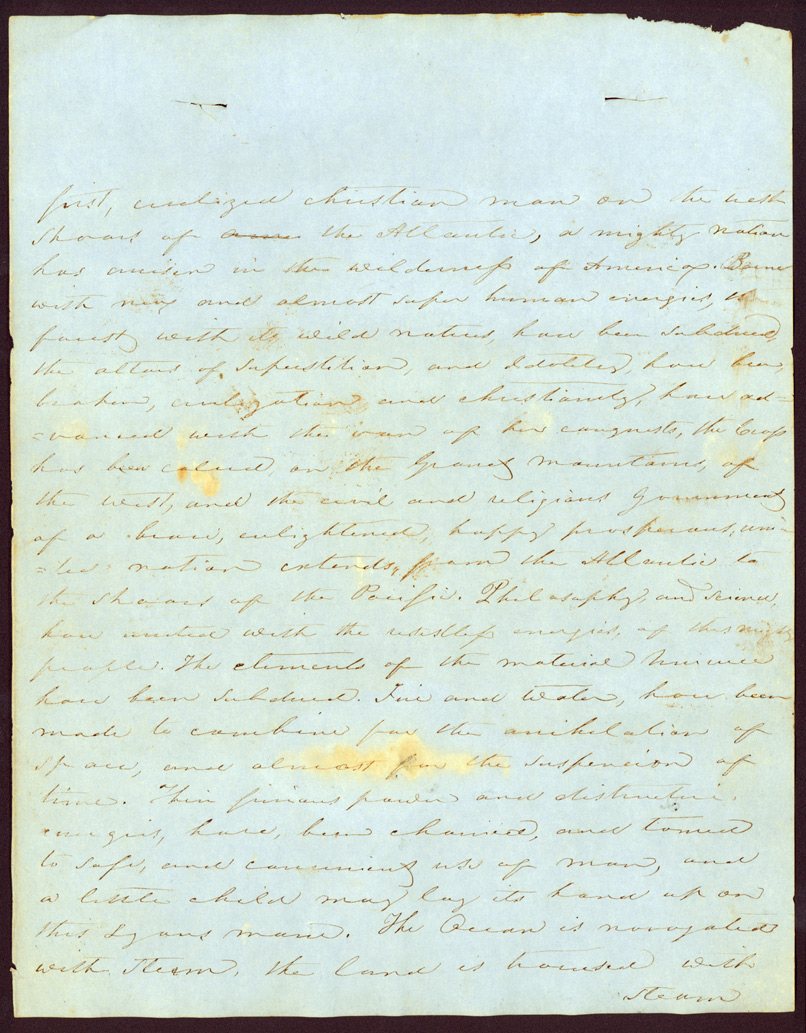 first, civilized christian man on the west
shoars of the Atlantic, a mighty nation
has arisen in the wilderness of America. Borne
with new and almost super human energies, the
forist, with its wild natives, have been subdued,
the altars of superstition, and Idolitry, have been
broken, civilization and christianity, have ad-
=vanced with the van of her conquests, the Cross
has been on the Grand mountains, of
the west, and the civil and religious Government
of a brave, enlightened, happy prosperous, uni-
=ted nation extends, from the Atlantic to
the shoars of the Pacific. Philosophy, and Science,
have united with the restless energies, of this mighty
people. The elements of the material Universe
have been subdued. Fire and Water, have been
made to combine for the anihilation of
space, and almost for the suspencion of
time. Thir furious power and distructive
energies, have, been chained, and tamed
to safe, and convenient use of man, and
a little child may lay its hand up on
this Lyons mane. The Ocean is navogated
with Steam, the land is traversed with
steam